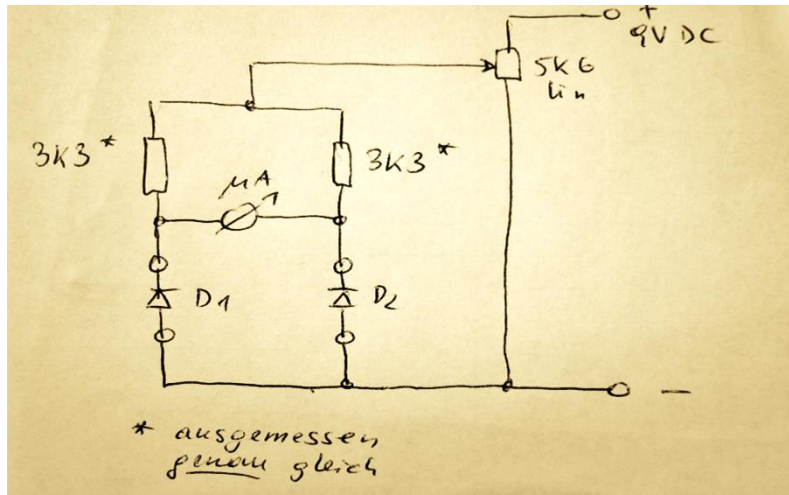 +
9V DC
5K6
lin
3K3 *
3K3 *
µA
D1
D2
-
* ausgemessen
genau gleich